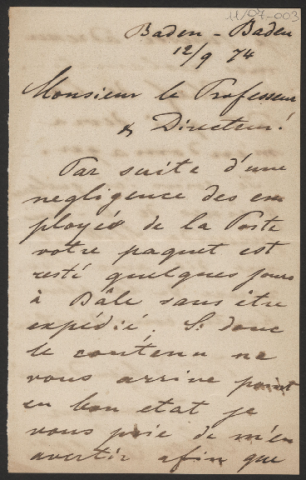 1197-003
Baden-Baden
12/9 74
Monsieur le Professeur
& Directeur!
Par suite d'une
negligence des em
ployés de la Poste
votre paquet est
resté quelques jours
à Bâle sans être
expédié. Si donc
le contenu ne
vous arrive point
en bon etat je
vous prie de m'en
avertir afin que